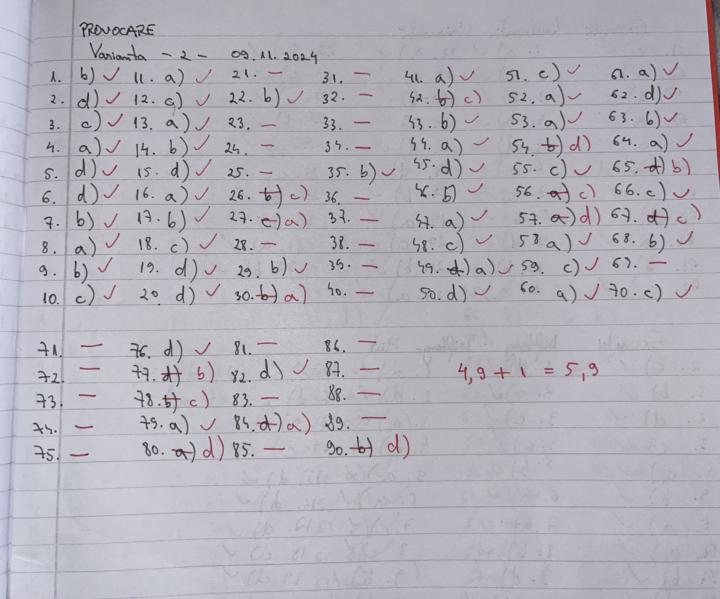 PROVOCARE
Varianta - 2 - 09.11.2024
1. b) ✓ 11. a) ✓ 21. — 31. — 41. a) ✓ 51. c) ✓ 61. a) ✓
2. d) ✓ 12. c) ✓ 22. b) ✓ 32. — 42. b) c) 52. a) ✓ 62. d) ✓
3. c) ✓ 13. a) ✓ 23. — 33. — 43. b) ✓ 53. a) ✓ 63. b) ✓
4. a) ✓ 14. b) ✓ 24. — 34. — 44. a) ✓ 54. b) d) 64. a) ✓
5. d) ✓ 15. d) ✓ 25. — 35. b) ✓ 45. d) ✓ 55. c) ✓ 65. d) b)
6. d) ✓ 16. a) ✓ 26. b) c) 36. — 46. b) ✓ 56. a) c) 66. c) ✓
7. b) ✓ 17. b) ✓ 27. c) a) 37. — 47. a) ✓ 57. a) d) 67. d) c)
8. a) ✓ 18. c) ✓ 28. — 38. — 48. c) ✓ 58. a) ✓ 68. b) ✓
9. b) ✓ 19. d) ✓ 29. b) ✓ 39. — 49. d) a) ✓ 59. c) ✓ 69. —
10. c) ✓ 20. d) ✓ 30. b) a) 40. — 50. d) ✓ 60. a) ✓ 70. c) ✓
71. — 76. d) ✓ 81. — 86. —
72. — 77. d) b) 82. d) ✓ 87. — 4,9 + 1 = 5,9
73. — 78. b) c) 83. — 88. —
74. — 79. a) ✓ 84. d) a) 89. —
75. — 80. a) d) 85. — 90. b) d)